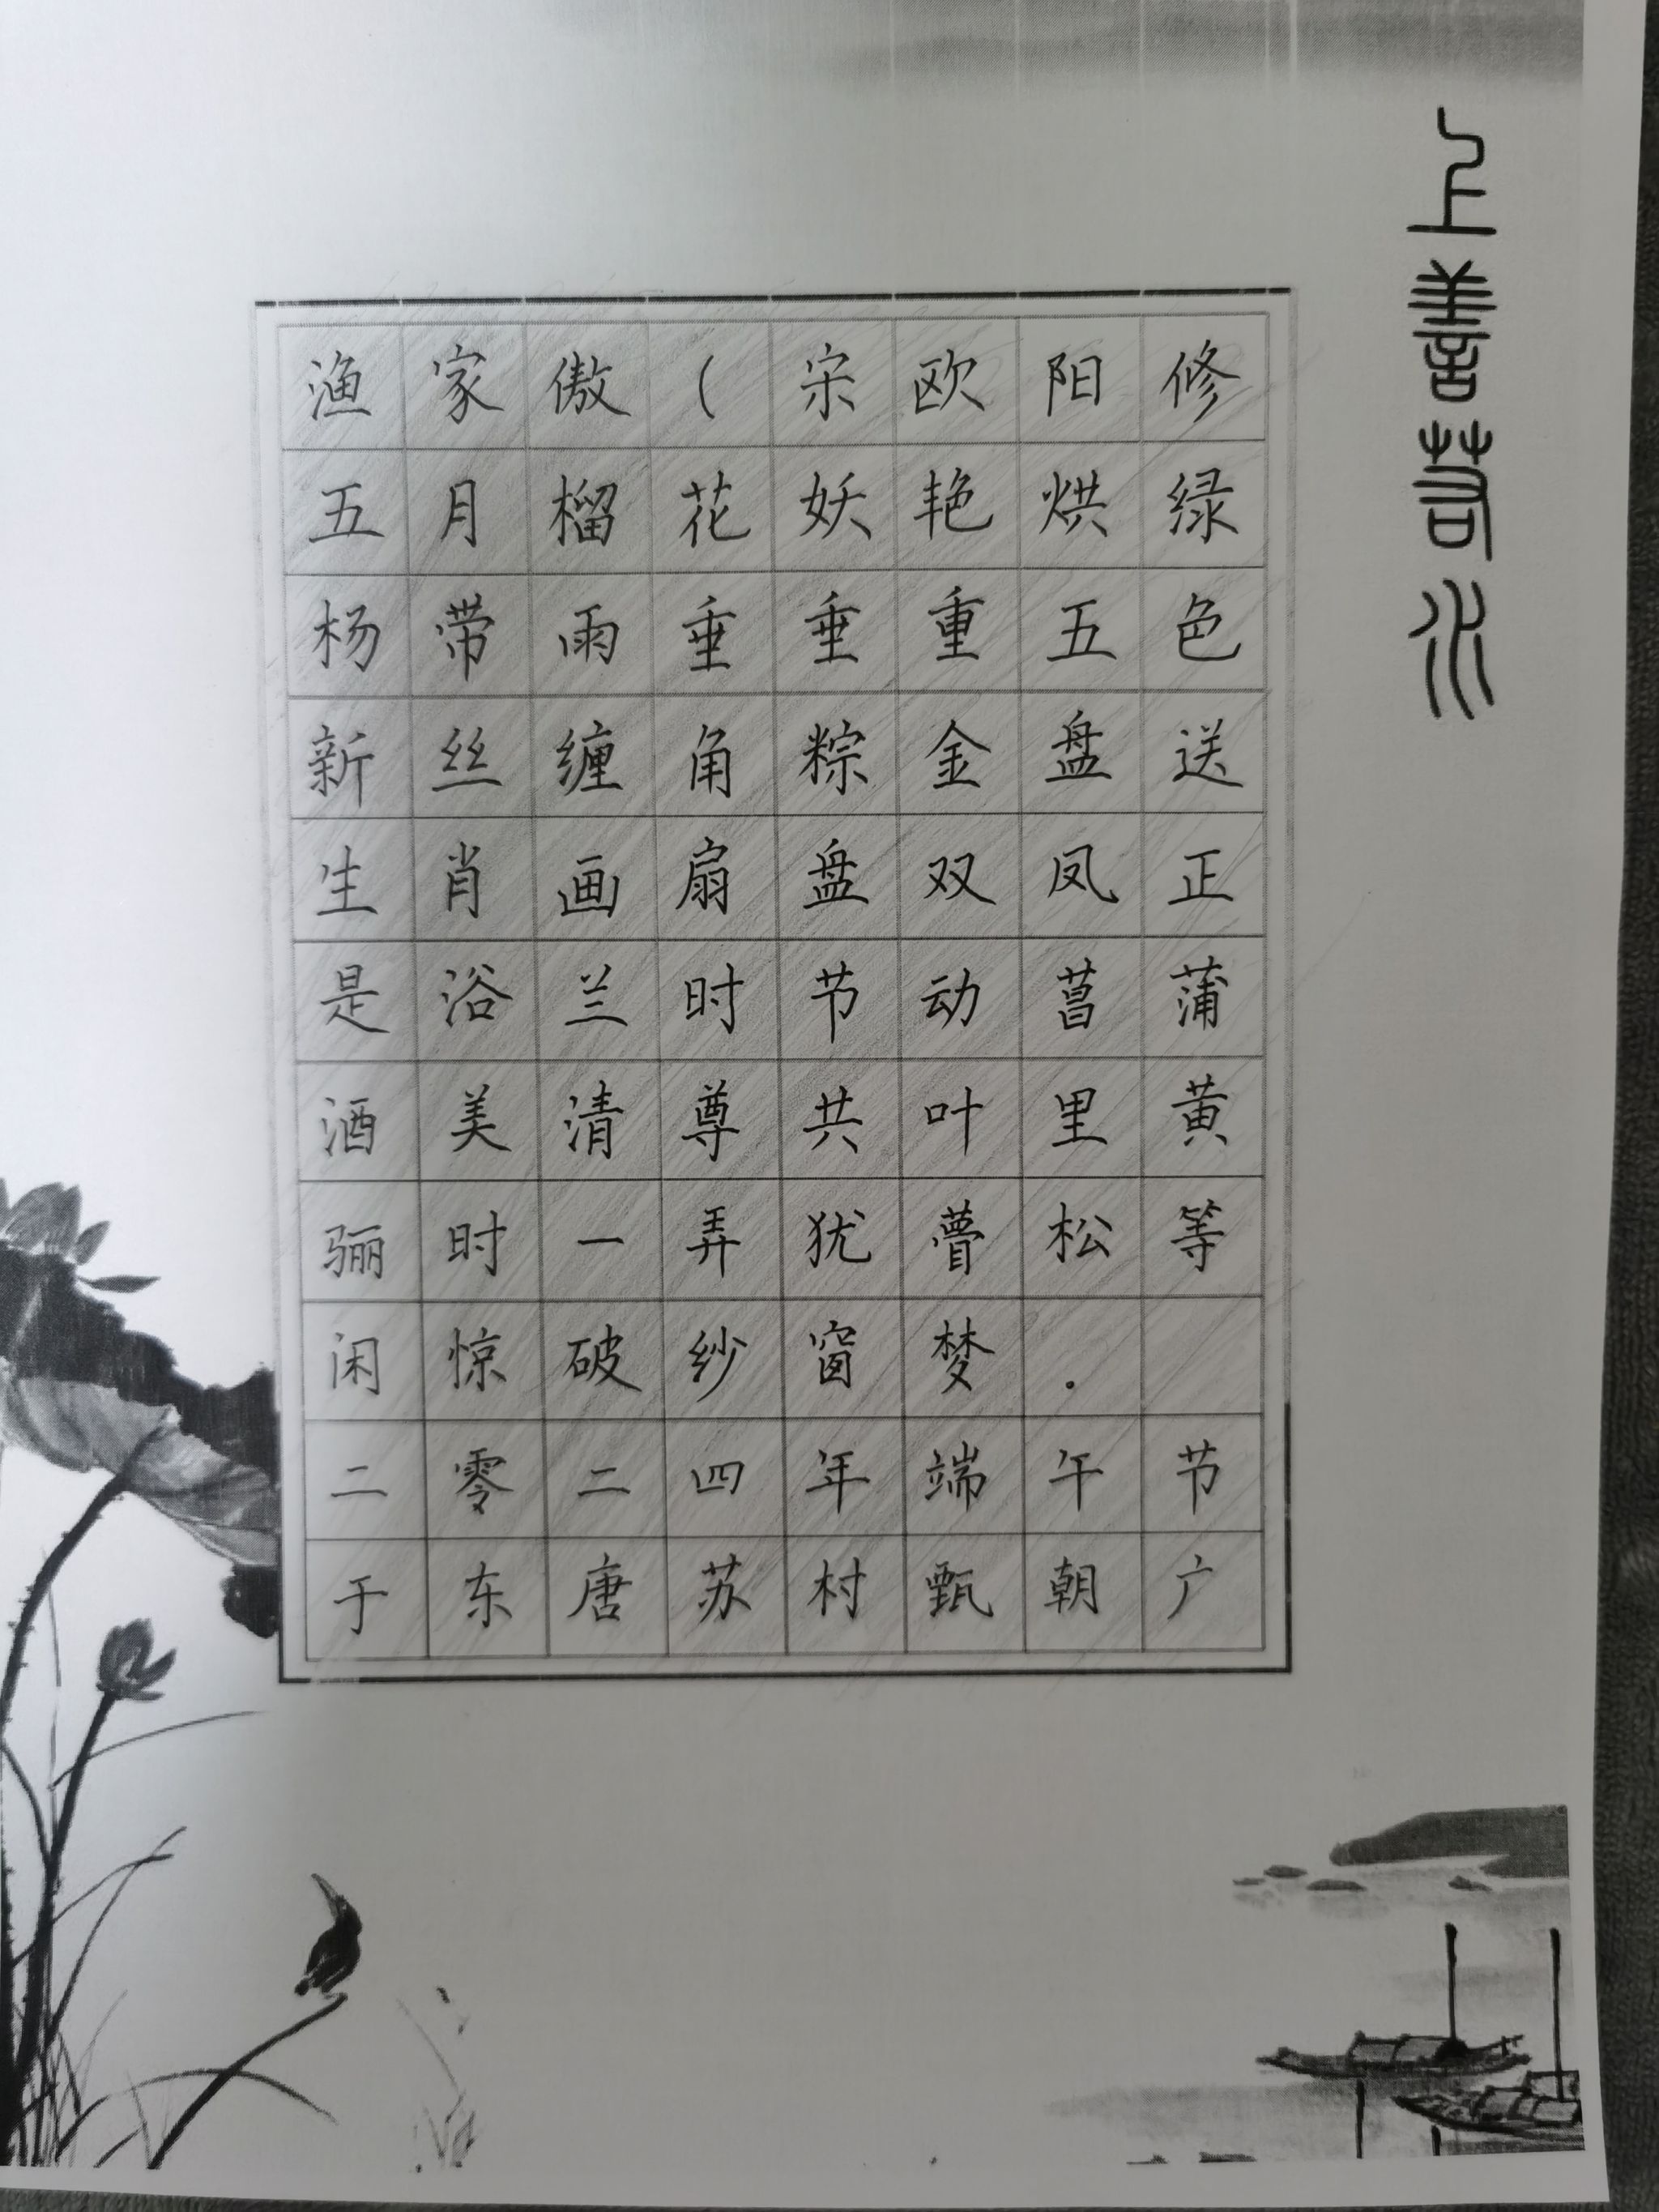 渔家傲(宋欧阳修
五月榴花妖艳烘绿
杨带雨垂垂重五色
新丝缠角粽金盘送
生肖画扇盘双凤正
是浴兰时节动菖蒲
酒美清尊共叶里黄
骊时一弄犹瞢松等
闲惊破纱窗梦.
二零二四年端午节
于东唐苏村甄朝广
上善若水